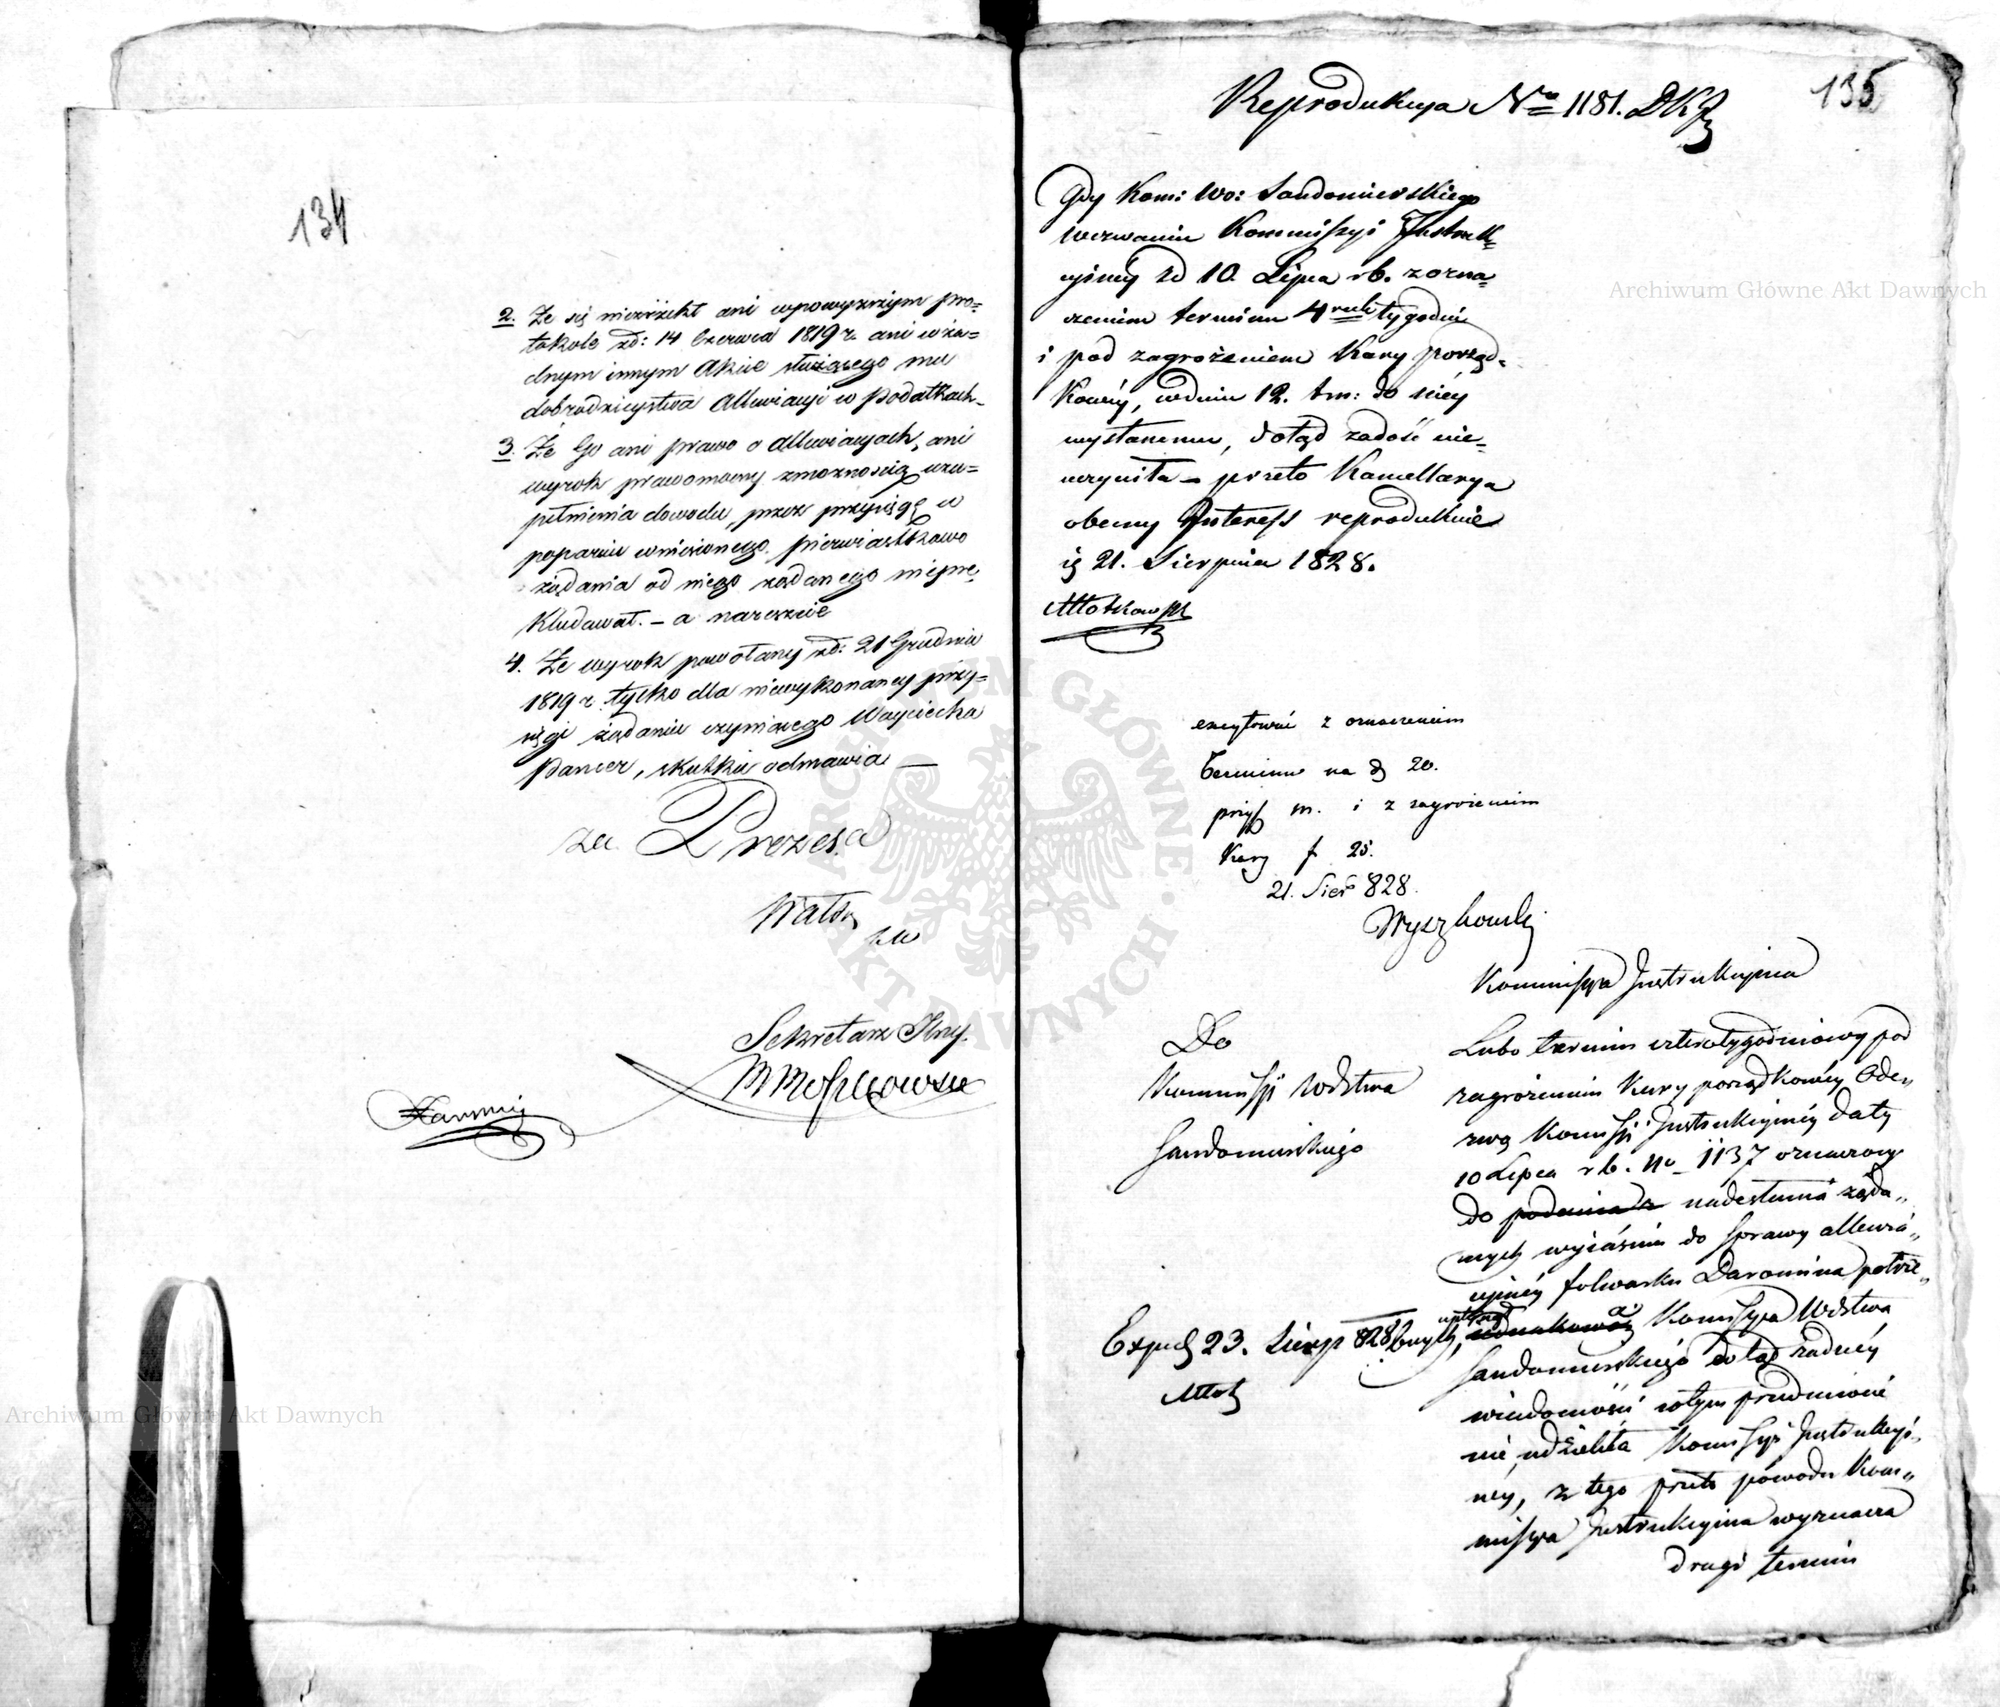 134
2. Że się niezrzekł ani wpowyższym pro=
tokole zd: 14 Czerwca 1819 r. ani wża=
dnym innym Akcie służącego mu
dobrodzieystwa Allewiacyi w Podatkach_
3. Że Go ani prawo o allewiacyach, ani
wyrok prawomocny zmożnością uzu=
pełnienia dowodu, przez przysięgę w
poparciu wniesionego pierwiastkowo
żądania od niego żądanego nieprze
kludował. – a nareszcie
4. Że wyrok powołany zd: 21 Grudnia
1819 r. tylko dla niewykonaney przy=
sięgi żądaniu czyniącego Woyciecha
Pancer, skutku odmawia —
za Prezesa
za
Sekretarz Jlny.
135
Reprodukcya Nro 1181. DKJ
Gdy Kom: Wo: Sandomierskiego
wezwaniu Kommissyi Jnstruk=
cyiney zd 10. Lipca rb. z ozna=
czeniem terminu 4rech tygodni
i pod zagrożeniem Kary porząd=
kowéy, wdniu 12. tm: do niey
wysłanemu, dotąd zadość nie=
uczyniła – przeto Kancellarya
obecny Jnteress reprodukuie
d 21. Sierpnia 1828.
excytować z oznaczeniem
Terminu na d 20.
przyss m. i z zagrożeniem
Kary f 25.
21. Sier 828.
Wyszkowski
Kommissya Jnstrukcyina
Do
Kommissyi Wdztwa
Sandomirskiego
Lubo termin czterotygodniowy pod
zagrożeniem Kary porządkowéy Ode„
zwą Komissyi Jnstrukcyinéy daty
10 Lipca rb. No 1137 oznaczony
do nadesłania żąda„
nych wyiaśnień do sprawy allewia„
cyinéy folwarku Daromina potrze„
bnych, upłynął, a Komissya Wdztwa
Sandomirskiego dotąd żadnéy
wiadomości wtym przedmiocie
nie udzieliła Komissyi Jnstrukcyi„
néy, z tego przeto powodu Kom„
missya Jnstrukcyina wyznacza
drugi termin
Exped 23. Sierp 828
Młot
Archiwum Główne Akt Dawnych
Archiwum Główne Akt Dawnych
ARCHIWUM GŁÓWNE AKT DAWNYCH